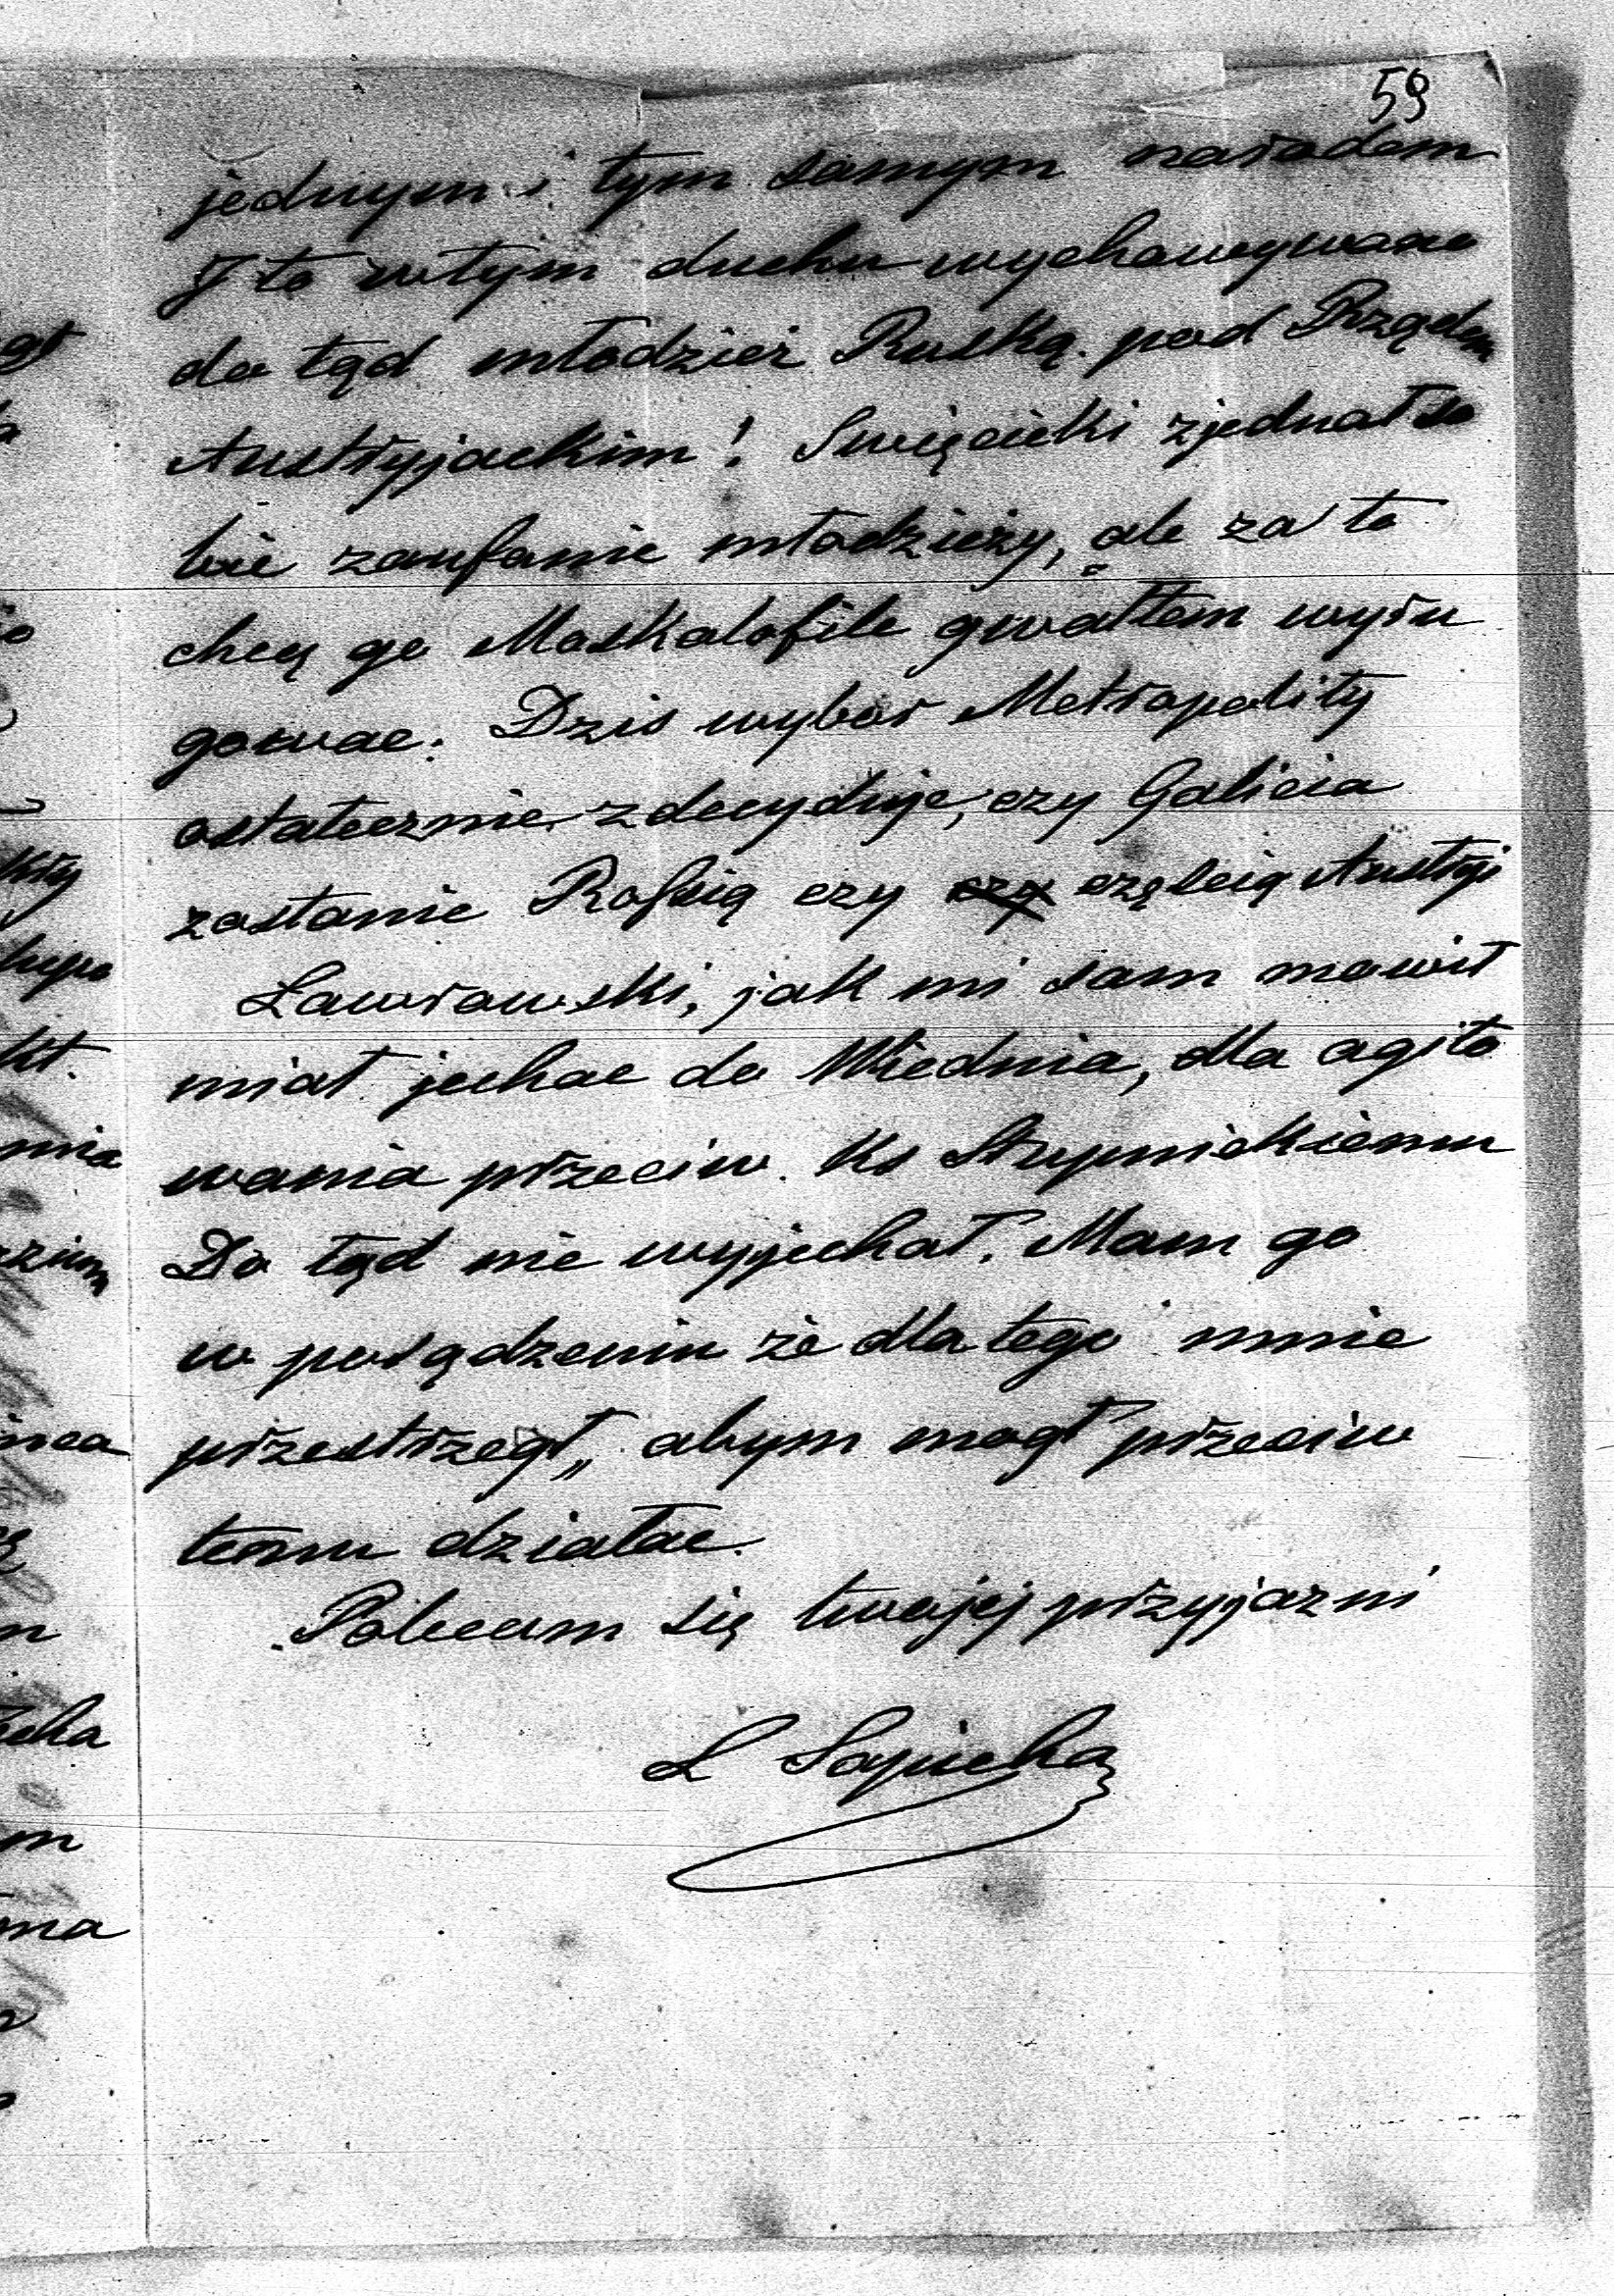 59
jednym i tym samym narodem
I to w tym duchu wychowywano
do tąd młodzież Ruską pod Rządem
Austryjackim! Swięcicki zjednał so
bie zaufanie młodzieży, ale za to
chcą go Moskalofile gwałtem wyru
gowac. Dzis wybor Metropolity
ostatecznie zdecyduje, czy Galicia
zostanie Rossią czy częscią Austryi
Ławrowski, jak mi sam mowił
miał jechac do Wiednia, dla agito
wania przeciw Ks Stupnickiemu
Do tąd nie wyjechał. Mam go
w posądzeniu że dla tego mnie
przestrzegł, abym mogł przeciw
temu działac.
Polecam się twojej przyjazni
L Sapieha